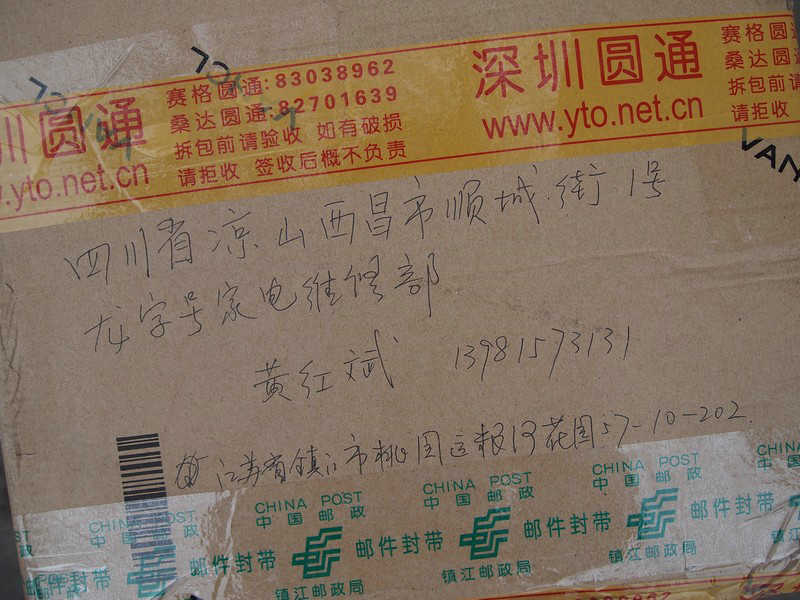 圳圆通
www.yto.net.cn
赛格圆通:83038962
桑达圆通:82701639
拆包前请验收 如有破损
请拒收 签收后概不负责
深圳圆通
www.yto.net.cn
赛格圆通
桑达圆通
拆包前请
请拒收
VAN
四川省凉山西昌市顺城街1号
龙字号家电维修部
黄红斌 13981573131
江苏省镇江市桃园运粮河花园57-10-202
CHINA POST CHINA POST CHINA POST CHINA POST
中国邮政 中国邮政 中国邮政 中国邮政
邮件封带 邮件封带 邮件封带 邮件封带
镇江邮政局 镇江邮政局 镇江邮政局